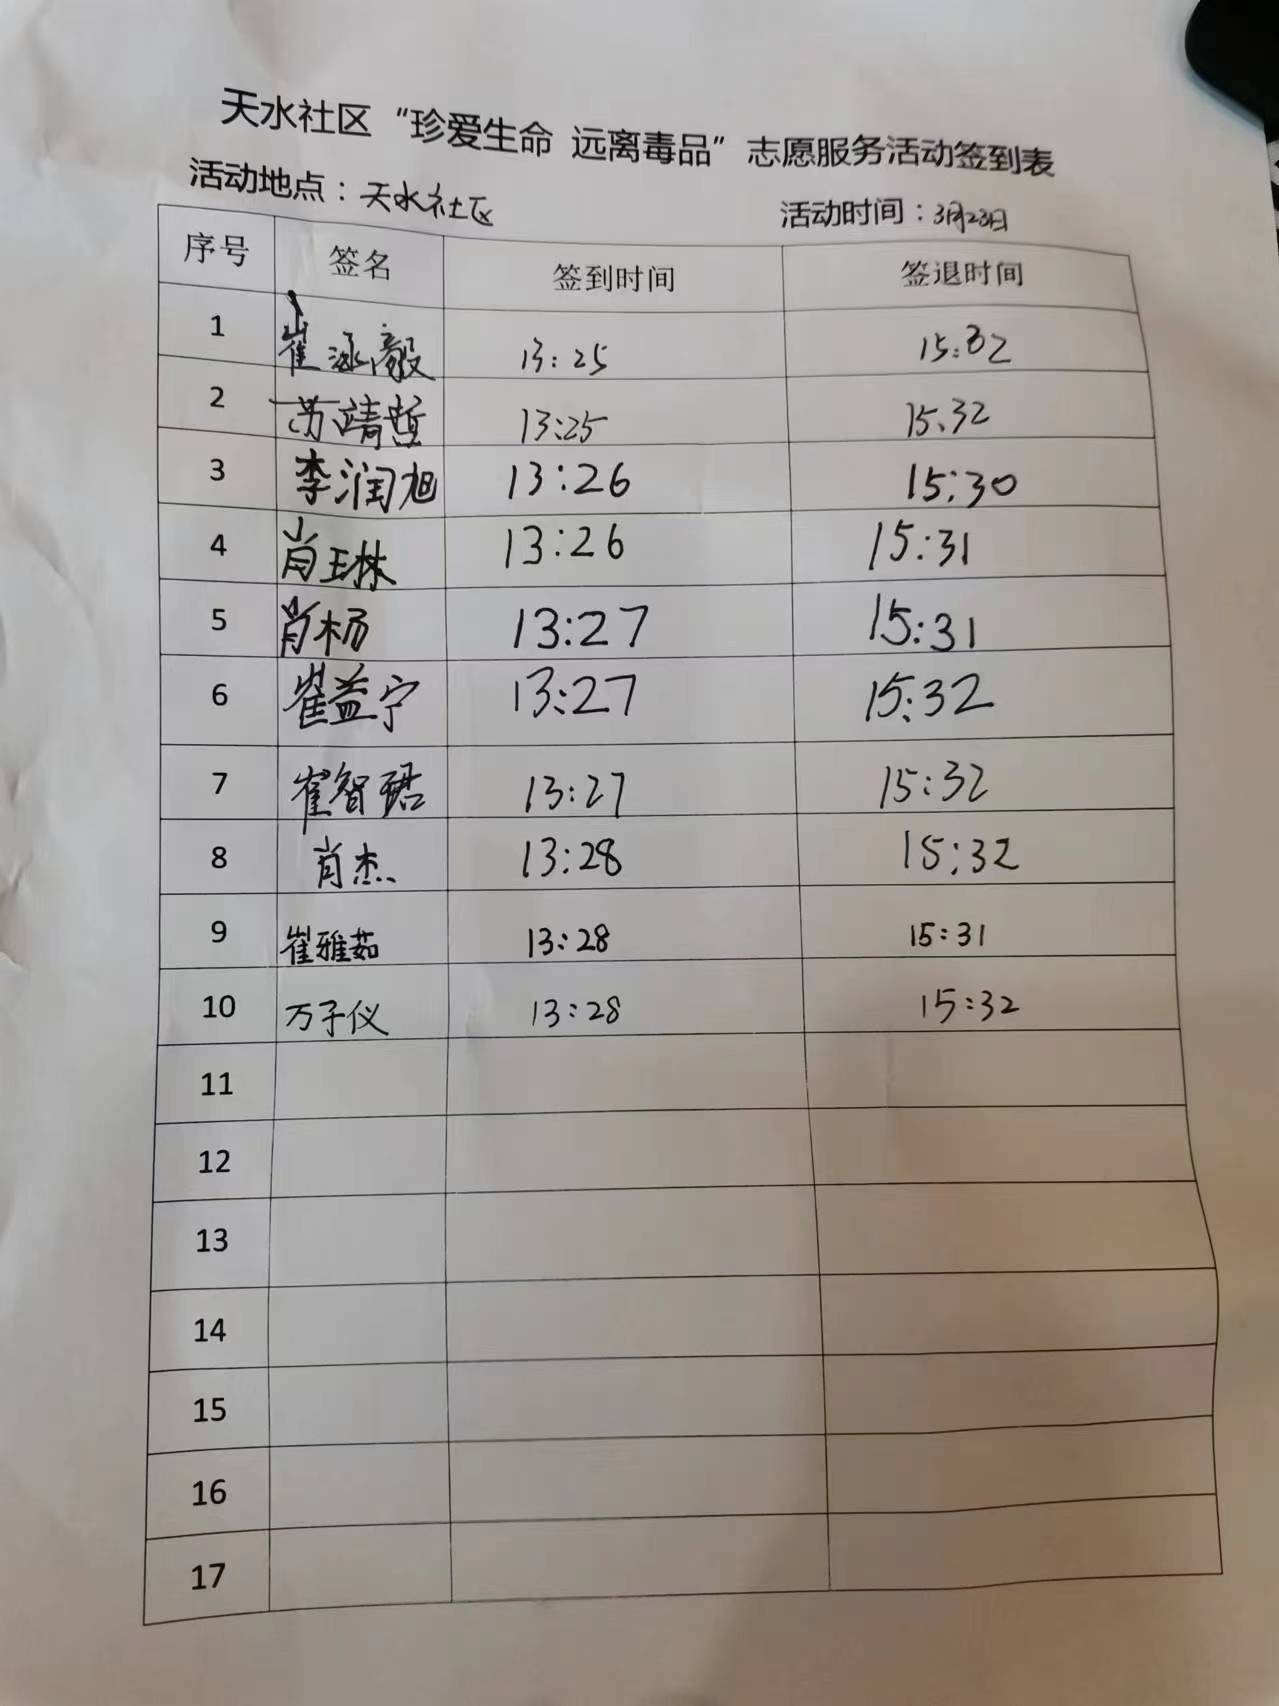 天水社区“珍爱生命 远离毒品”志愿服务活动签到表
活动地点：天水社区 活动时间：3月23日
序号 签名 签到时间 签退时间
1 崔泳毅 13:25 15:32
2 苏靖哲 13:25 15:32
3 李润旭 13:26 15:30
4 肖王林 13:26 15:31
5 肖杨 13:27 15:31
6 崔益宁 13:27 15:32
7 崔智珺 13:27 15:32
8 肖杰 13:28 15:32
9 崔雅茹 13:28 15:31
10 万子仪 13:28 15:32
11
12
13
14
15
16
17